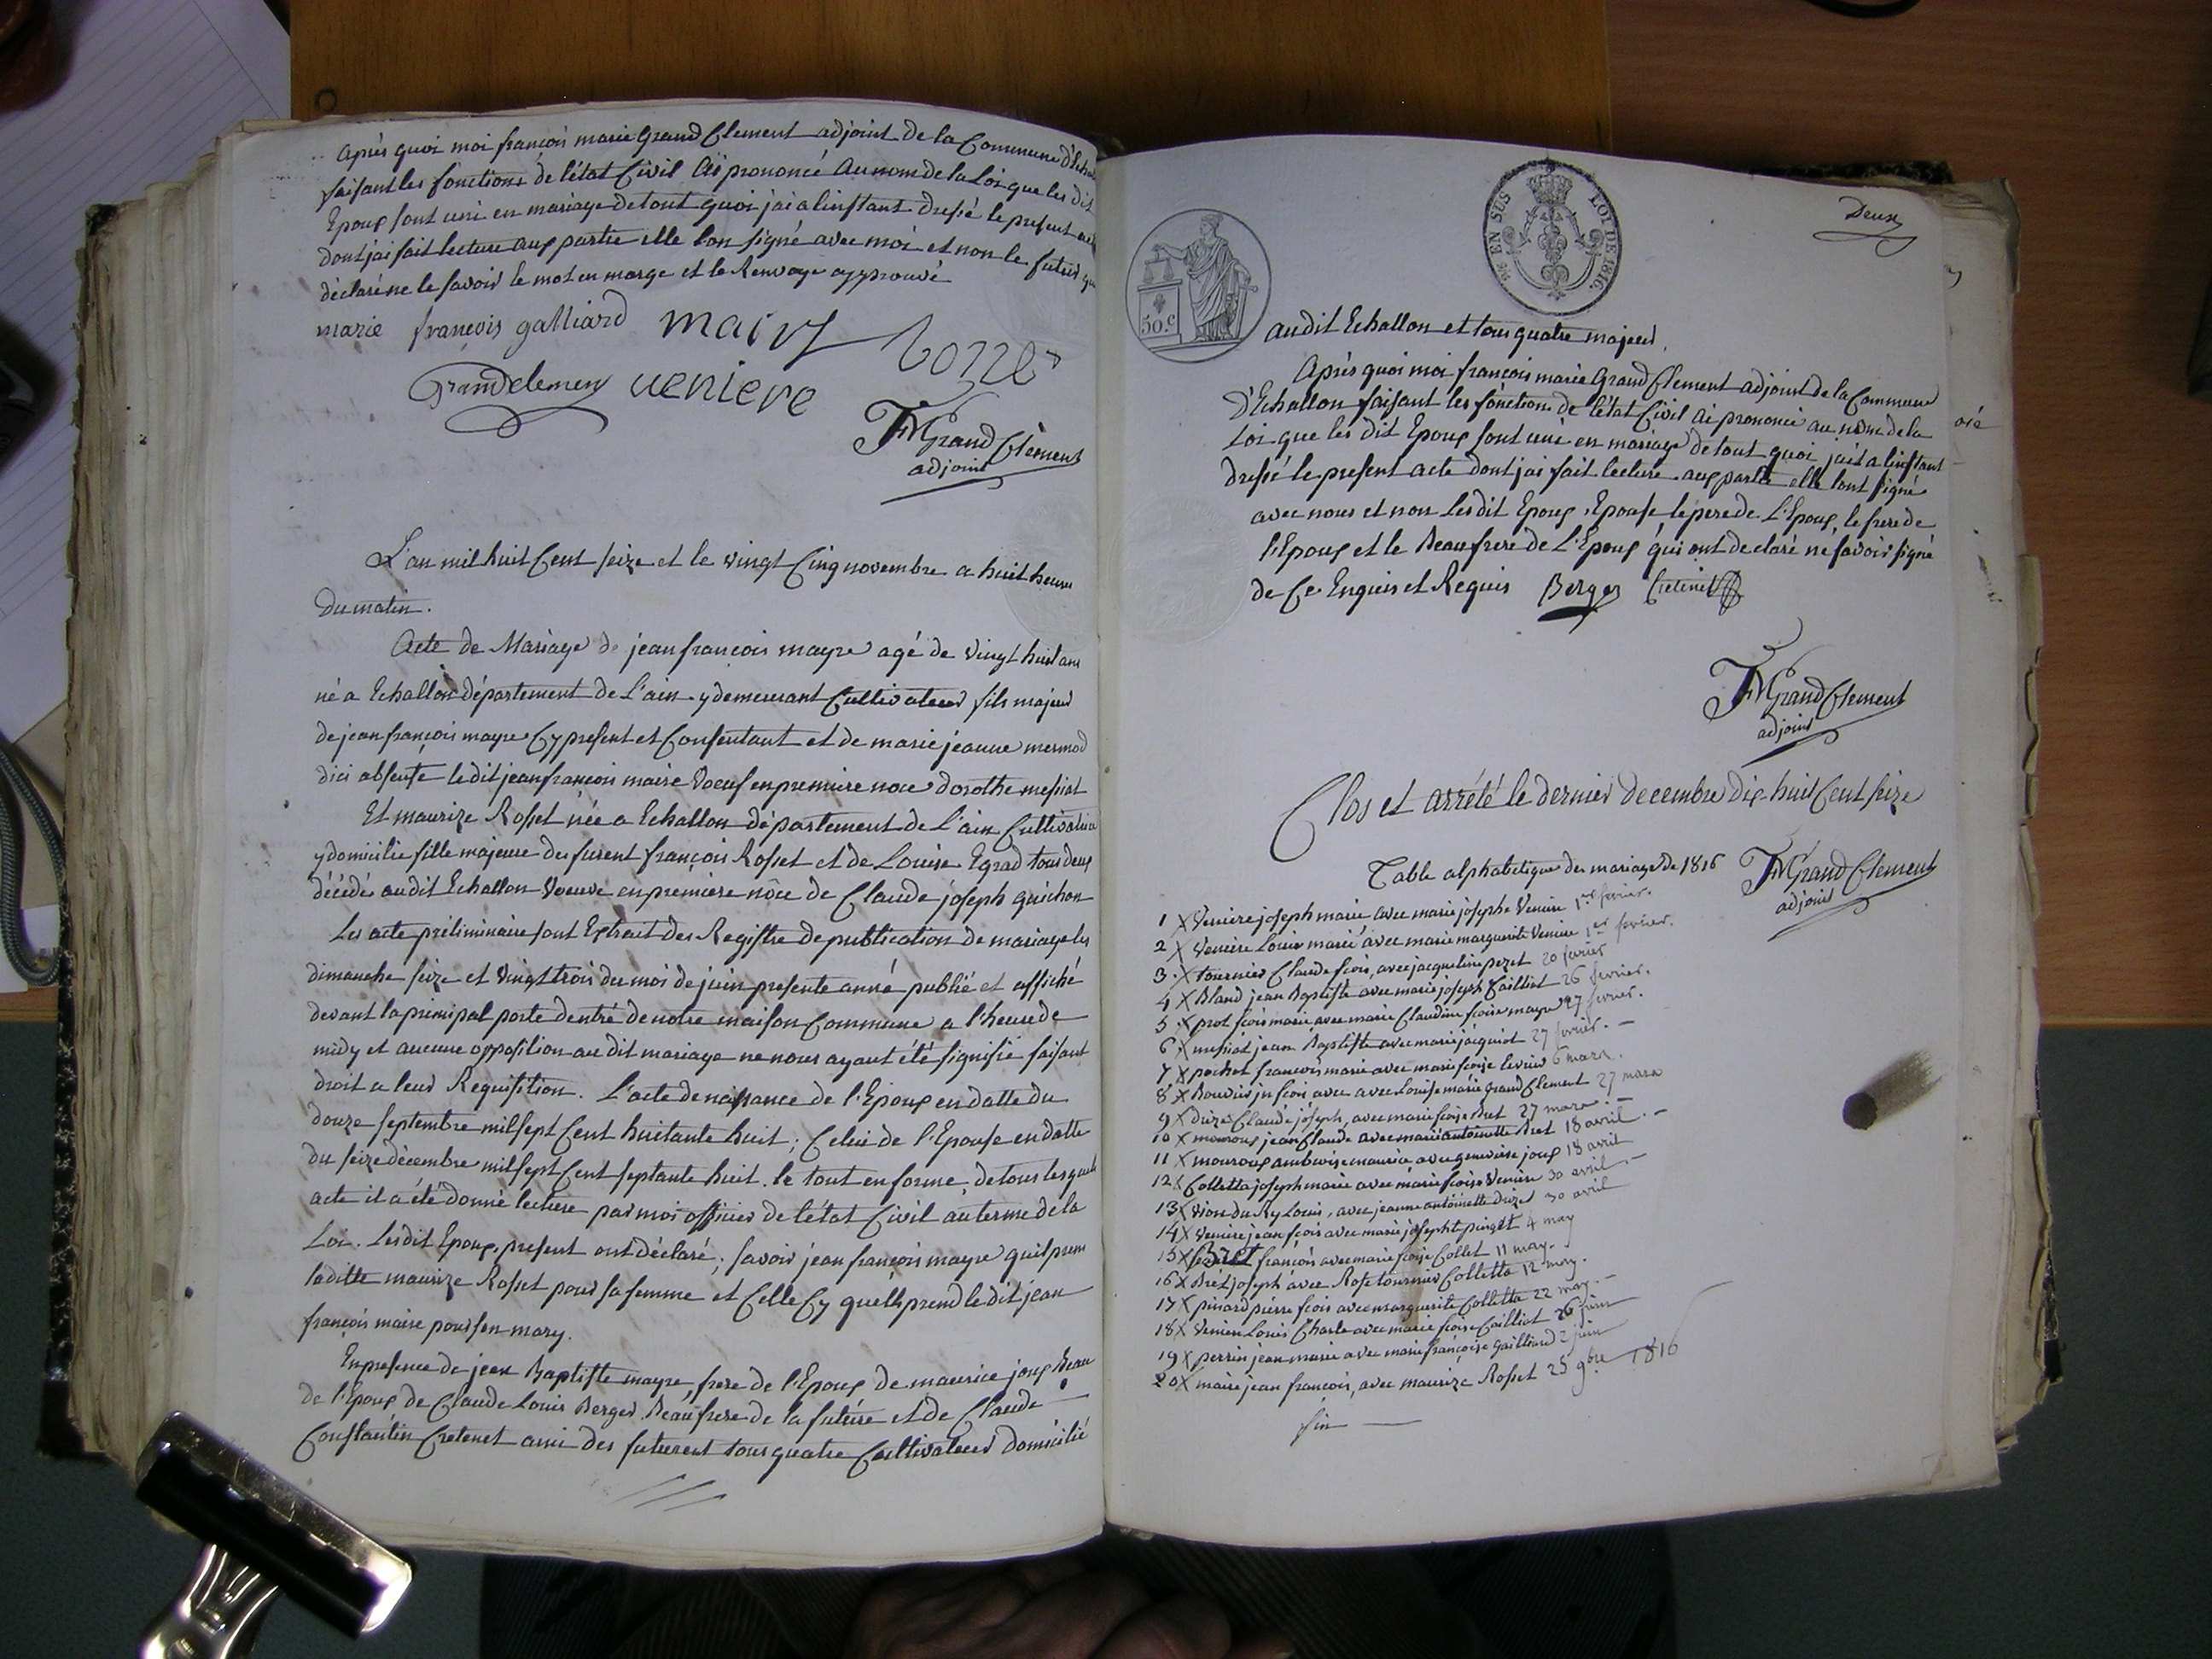 Après quoi moi françois marie Grand Clement adjoint de la Commune
faisant les fonctions de létat Civil Ai prononcé Au nom de la Loi que les dit
Epoux sont uni en mariage de tout quoi jai a linstant dressé le present
dont jai fait lecture aux partie elle lon signé avec moi et non le futur
déclaré ne le savoir le mot en marge et le Renvoye approuvé
marie françois galliard mairy
Grandclement veniere
FM Grand Clement
adjoint
L'an mil huit Cent seize et le vingt Cinq novembre a huit heures
du matin.
Acte de Mariage de jean françois mayre agé de vingt huit ans
né a Echallon département de L'ain y demeurant Cultivateur fils majeur
de jean françois mayre Cy present et Consentant et de marie jeanne mermod
dici absente ledit jean françois maire voeuf en premiere noce dorothe messiat
Et maurize Rosset née a Echallon département de L'ain Cultivatrice
y domicilie fille majeure de furent françois Rosset et de Louise Egrad tous deux
décédé audit Echallon voeuve en premiere nôce de Claude joseph guichon
Les acte préliminaire sont Extrait des Registre de publication de mariage les
dimanche seize et vingt trois du mois de juin presente anné publié et affiché
devant la principal porte dentré de notre maison Commune a l'heure de
midy et aucune opposition au dit mariage ne nous ayant été signifié faisant
droit a leur Requisition. L'acte de naissance de l'Epoux en datte du
douze septembre mil sept Cent huitante huit ; Celui de l'Epouse en datte
du seize décembre mil sept Cent septante huit. le tout en forme, de tous lesquels
acte il a été donné lecture par moi officier de létat Civil au terme de la
Loi. Lesdit Epoux present ont déclaré ; savoir jean françois mayre quil prem
laditte maurize Rosset pour sa femme et Celle Cy quelle prend le dit jean
françois maire pour son mary.
En presence de jean Baptiste mayre, frere de l'Epoux de maurice joux Beau
de l'Epoux de Claude Louis Berger Beaufrere de la future et de Claude
Constantin Cretenet ami des futurent tous quatre Cultivateur domicilié
EN SUS
LOI DE 1816.
Deux
50.c
audit Echallon et tous quatre majeur.
Après quoi moi françois marie Grand Clement adjoint de la Commune
D'Echallon faisant les fonctions de létat Civil ai prononcé au nom de la
Loi que les dit Epoux sont uni en mariage de tout quoi jai a linstant
dressé le present acte dont jai fait lecture aux partie elle lont signé
avec nous et non lesdit Epoux, Epouse le pere de L'Epoux, le frere de
l'Epoux et le Beaufrere de L'Epoux qui ont declaré ne savoir signé
de Ce Enquis et Requis Berger Cretenet
FM Grand Clement
adjoint
Clos et arrêté le dernier decembre dix-huit Cent seize
Table alphabetique des mariage de 1816
FM Grand Clement
adjoint
1 X Veniere joseph marie avec marie josephe Veniere 1er fevrier.
2 X Veniere Louis marie avec marie marguerite Veniere 1er fevrier.
3 X tournier Claude fçois, avec jacqueline pezet 20 fevrier
4 X Bland jean Baptiste avec marie joseph Cailliat 26 fevrier.
5 X prot fçois marie avec marie Claudine fçoise mayre 27 fevrier.
6 X messiat jean Baptiste avec marie jacquiot 27 fevrier. —
7 X pochet françois marie avec marie fçoise 6 mars.
8 X Bouvier jn fçois avec avec Louise marie Grand Clement 27 mars
9 X Claude joseph, avec marie fçoise Bret 27 mars. —
10 X mouroux jean Claude avec marie antoinette Bret 18 avril. —
11 X mouroux ambroise maurice avec genevieve joux 18 avril
12 X Colletta joseph marie avec marie fçoise Veniere 30 avril —
13 X Louis, avec jeanne antoinette 30 avril
14 X Veniere jean fçois avec marie josepht pinget 4 may
15 X Bret françois avec marie fçoise Collet 11 may.
16 X Bret joseph avec Rose tournier Colletta 12 may.
17 X pinard pierre fçois avec marguerite Colletta 22 may. —
18 X Veniere Louis Charle avec marie fçoise Cailliat 26 juin
19 X perrin jean marie avec marie françoise gailliard 2 juin
20 X maire jean françois, avec maurize Rosset 25 9bre 1816
fin —